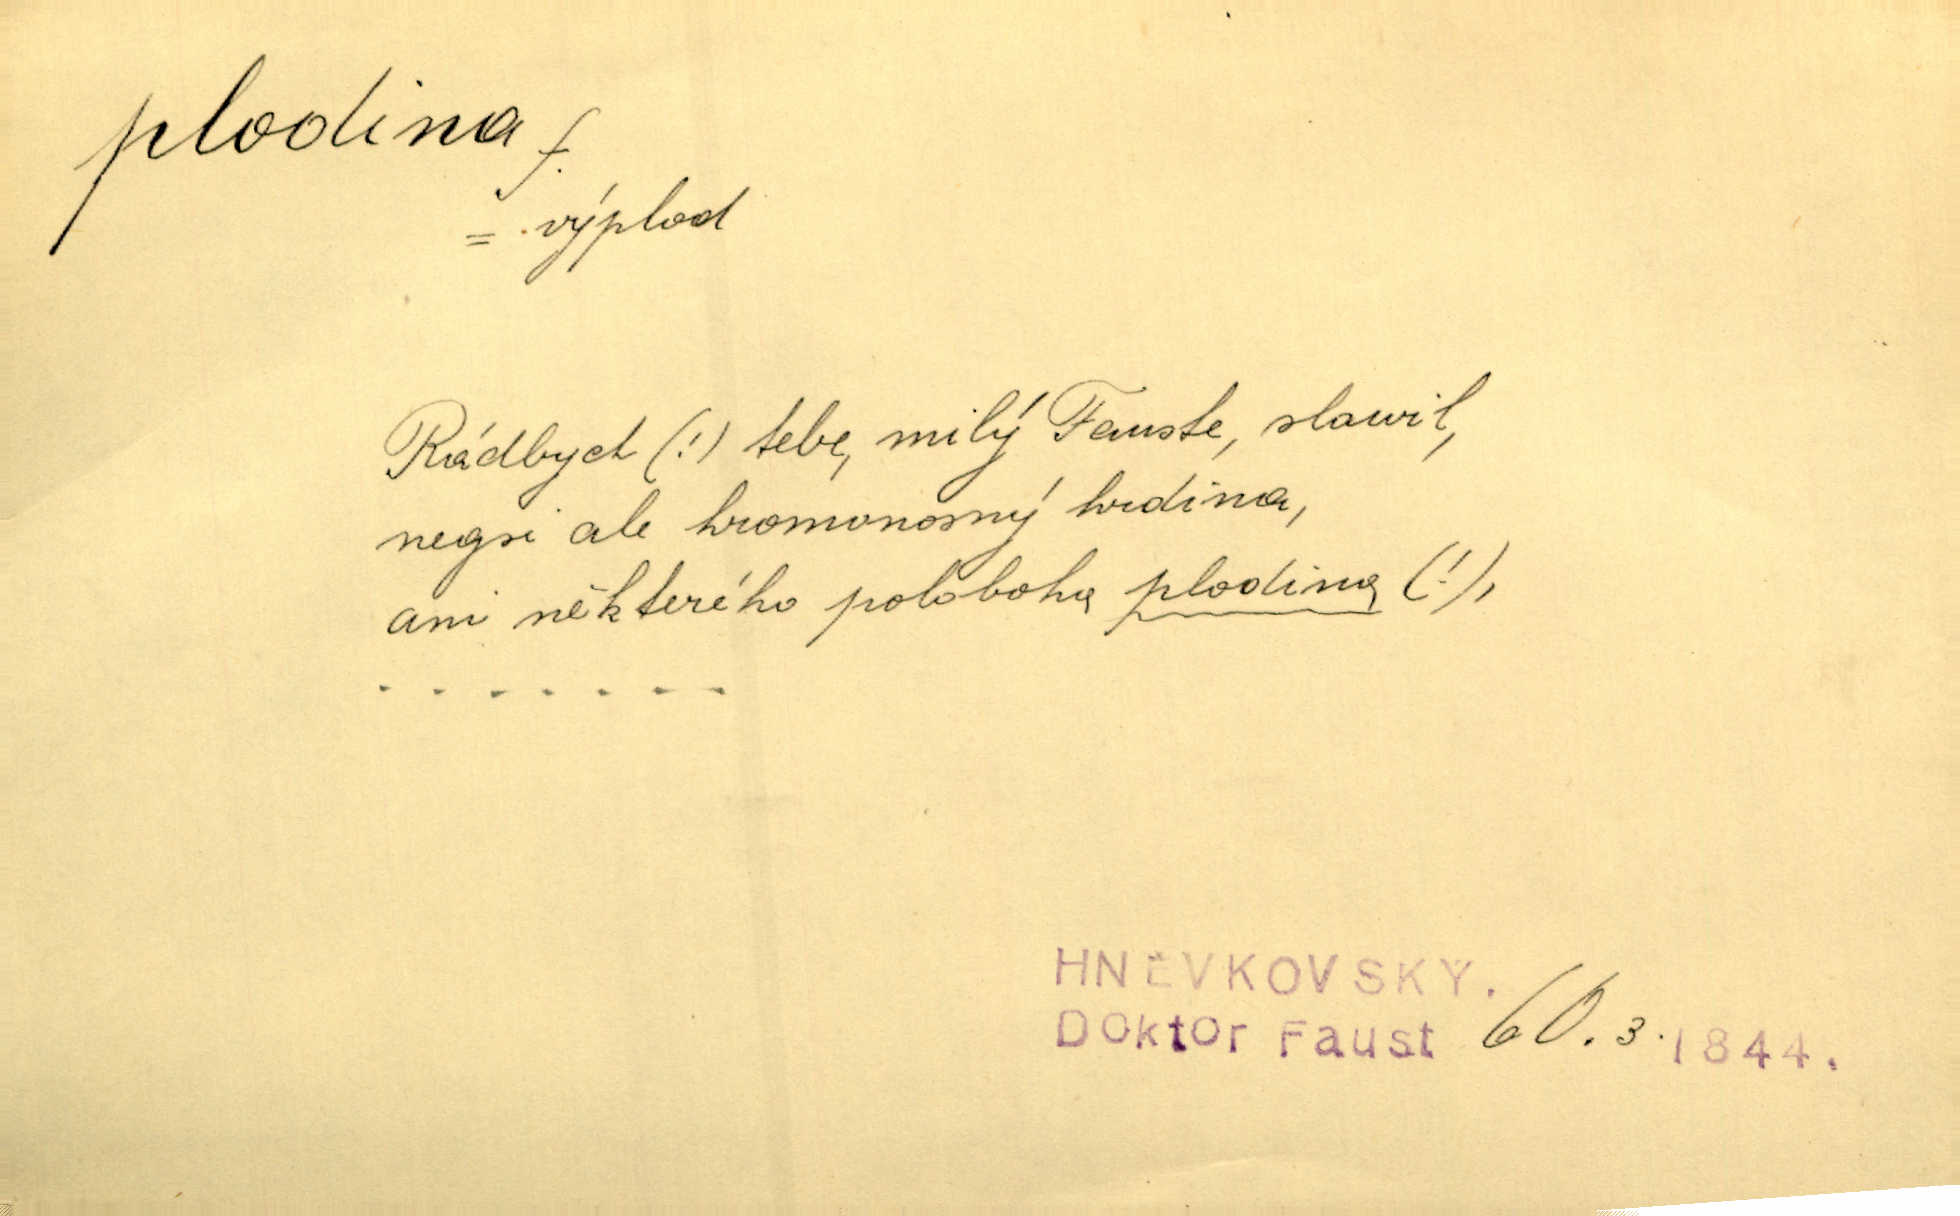 plodina f.
= výplod
Rádbych (!) tebe, milý Fauste, slawil,
negsi ale hromonosný hrdina,
ani některého poloboha plodina (!),
. . . . . . .
HNĚVKOVSKÝ.
Doktor Faust 60. 3. 1844.